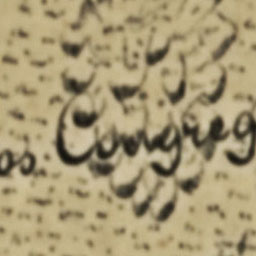 os Congreg